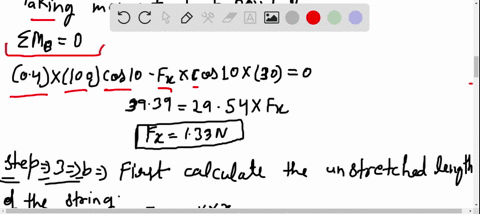 Taking
ΣM_B = 0
(0.4)×(10g) cos10 - Fx × cos10 × (30) = 0
39.39 = 29.54 × Fx
Fx = 1.33 N
Step⇒3⇒b⇒ First calculate the unstretched length
of the string: